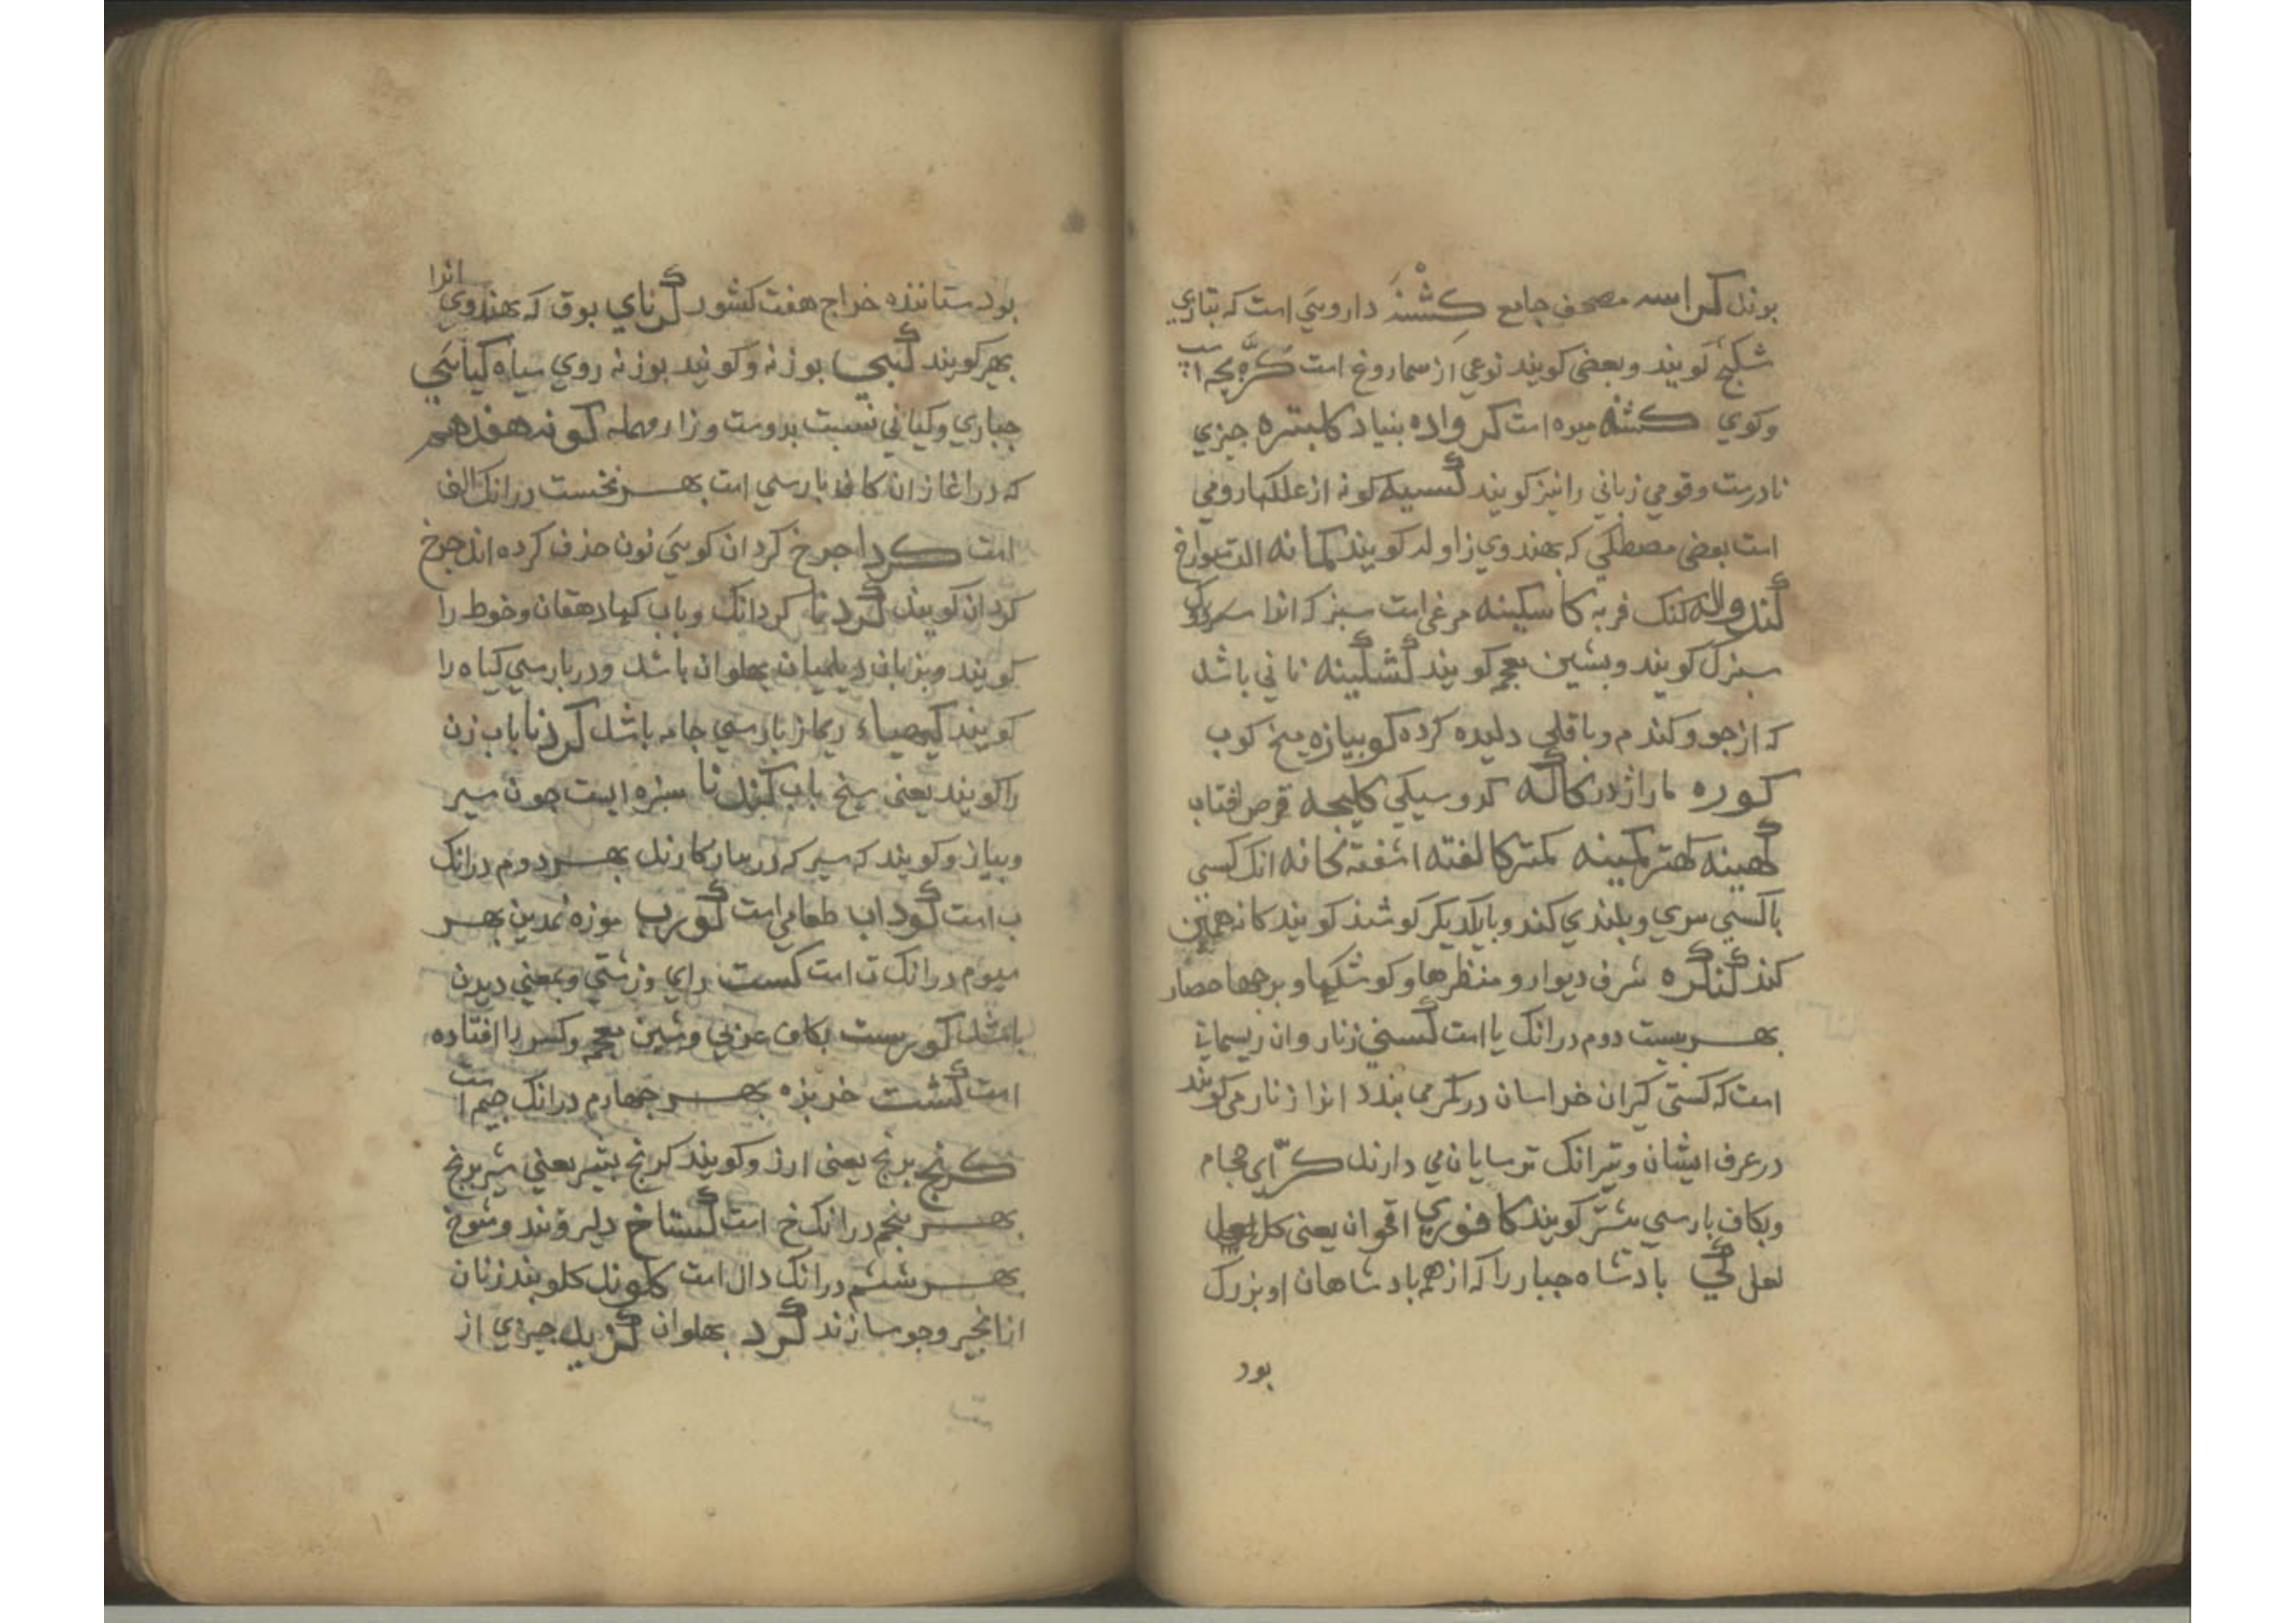 بوند کراسه مصحف جامع کشنه دارویی است که بتازی
شکنج کویند و بعضی کویند نوعی از سماروغ است کره بچه
وکوی کشه میوه است کر واده بنیاد کلبتره چیزی
نادرست و قومی زبانی را نیز کویند کسیه کونه از علکها رومی
است بعضی مصطکی که بهندوی زاوله کویند کمانه الت سوراخ
کندواله کنک فربه کاسکینه مرغی است سبز که انرا
سبزک کویند و بشین معجم کویند کشکینه نانی باشد
که از جو و کندم و باقلی دلیده کرده کوبیازه میخ کوب
کوره کاله کدو سیکی کلیجه قرص افتاب
کهینه کهتر کمینه کمتر کالفته اشفته انک کسی
باکسی سری و بلندی کند و بایکدیکر کوشند کویند
کند کنکره شرف دیوار و منظرها و کوشکها و برجها حصار
بهر بیست دوم درانک یا است کستی زنار وان ریسمانی
است که کستی کیران خراسان درکمر می بندد انرا زنار می کویند
در عرف ایشان و نیز انک ترسایان می دارند کرای حجام
وبکاف بارسی کویند کافوری اقحوان یعنی کل
لعل کی بادشاه جبار را که از همه بادشاهان او بزرک
بود
بود ستاننده خراج هفت کشور کرنای بوق که بهندوی انرا
بهیر کویند کبی بوزنه و کویند بوزنه روی سیاه کیایی
جباری و کیانی نسبت بدوست و زا رومهمله کونه هفدهم
که در اغاز ان کاف بارسی است بهر نخست درانک الف
است کردا چرخ کردان کویی نون حذف کرده اند چرخ
کردان کویند کردنا کردانک و باب کیا دهقان و خوط را
کویند و بزبان دیلمیان بهلوان باشد و در بارسی کیاه را
کویند کیمیاء ریماز بارسی جامه باشد کردنا باب زن
را کویند یعنی سیخ باب کندنا سبزه ایست چون سیر
وبیاز و کویند که سیر که در کارند بهر دوم درانک
ب است کوداب طعامی است کورب موزه نمدین بهر
سیوم درانک ت است کست رای و زشتی و بمعنی دیدن
باشد کورست بکاف عربی و شین معجم و کسر را افتاده
است کشت خربزه بهر چهارم درانک جیم است
کرنج برنج یعنی ارز و کویند کرنج بشیر یعنی شیر برنج
بهر پنجم درانک خ است کستاخ دلیر و تند و شوخ
بهر ششم درانک دال است کلوند کلوبند زنان
از انجیر و جو سازند کرد بهلوان کزید چیزی از